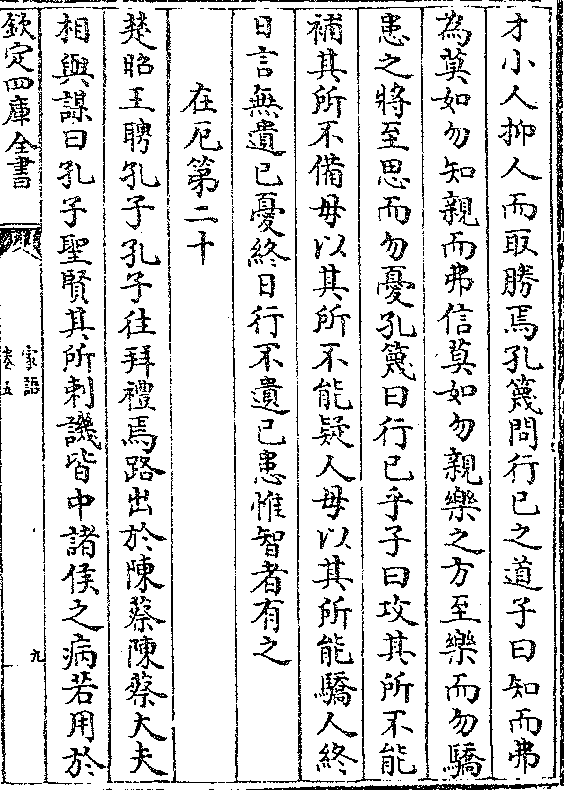 才小人抑人而取勝焉孔篾問行已之道子曰知而弗
為莫如勿知親而弗信莫如勿親樂之方至樂而勿驕
患之將至思而勿憂孔篾曰行已乎子曰攻其所不能
補其所不備毋以其所不能疑人毋以其所能驕人終
日言無遺已憂終日行不遺已患惟智者有之
在厄第二十
楚昭王聘孔子孔子往拜禮焉路出於陳蔡陳蔡大夫
相與謀曰孔子聖賢其所刺譏皆中諸侯之病若用於
欽定四庫全書
家語
卷五
九